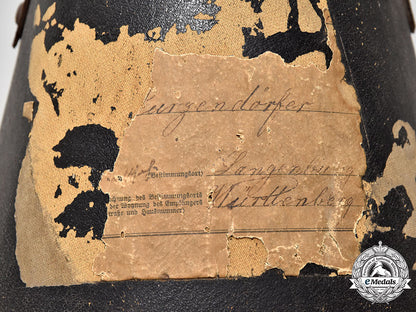 urzendörfer
(Bestimmungsort) Langenburg
Württemberg
hnung des Bestimmungsorts
der Wohnung des Empfängers
raße und Hausnummer)
eMedals